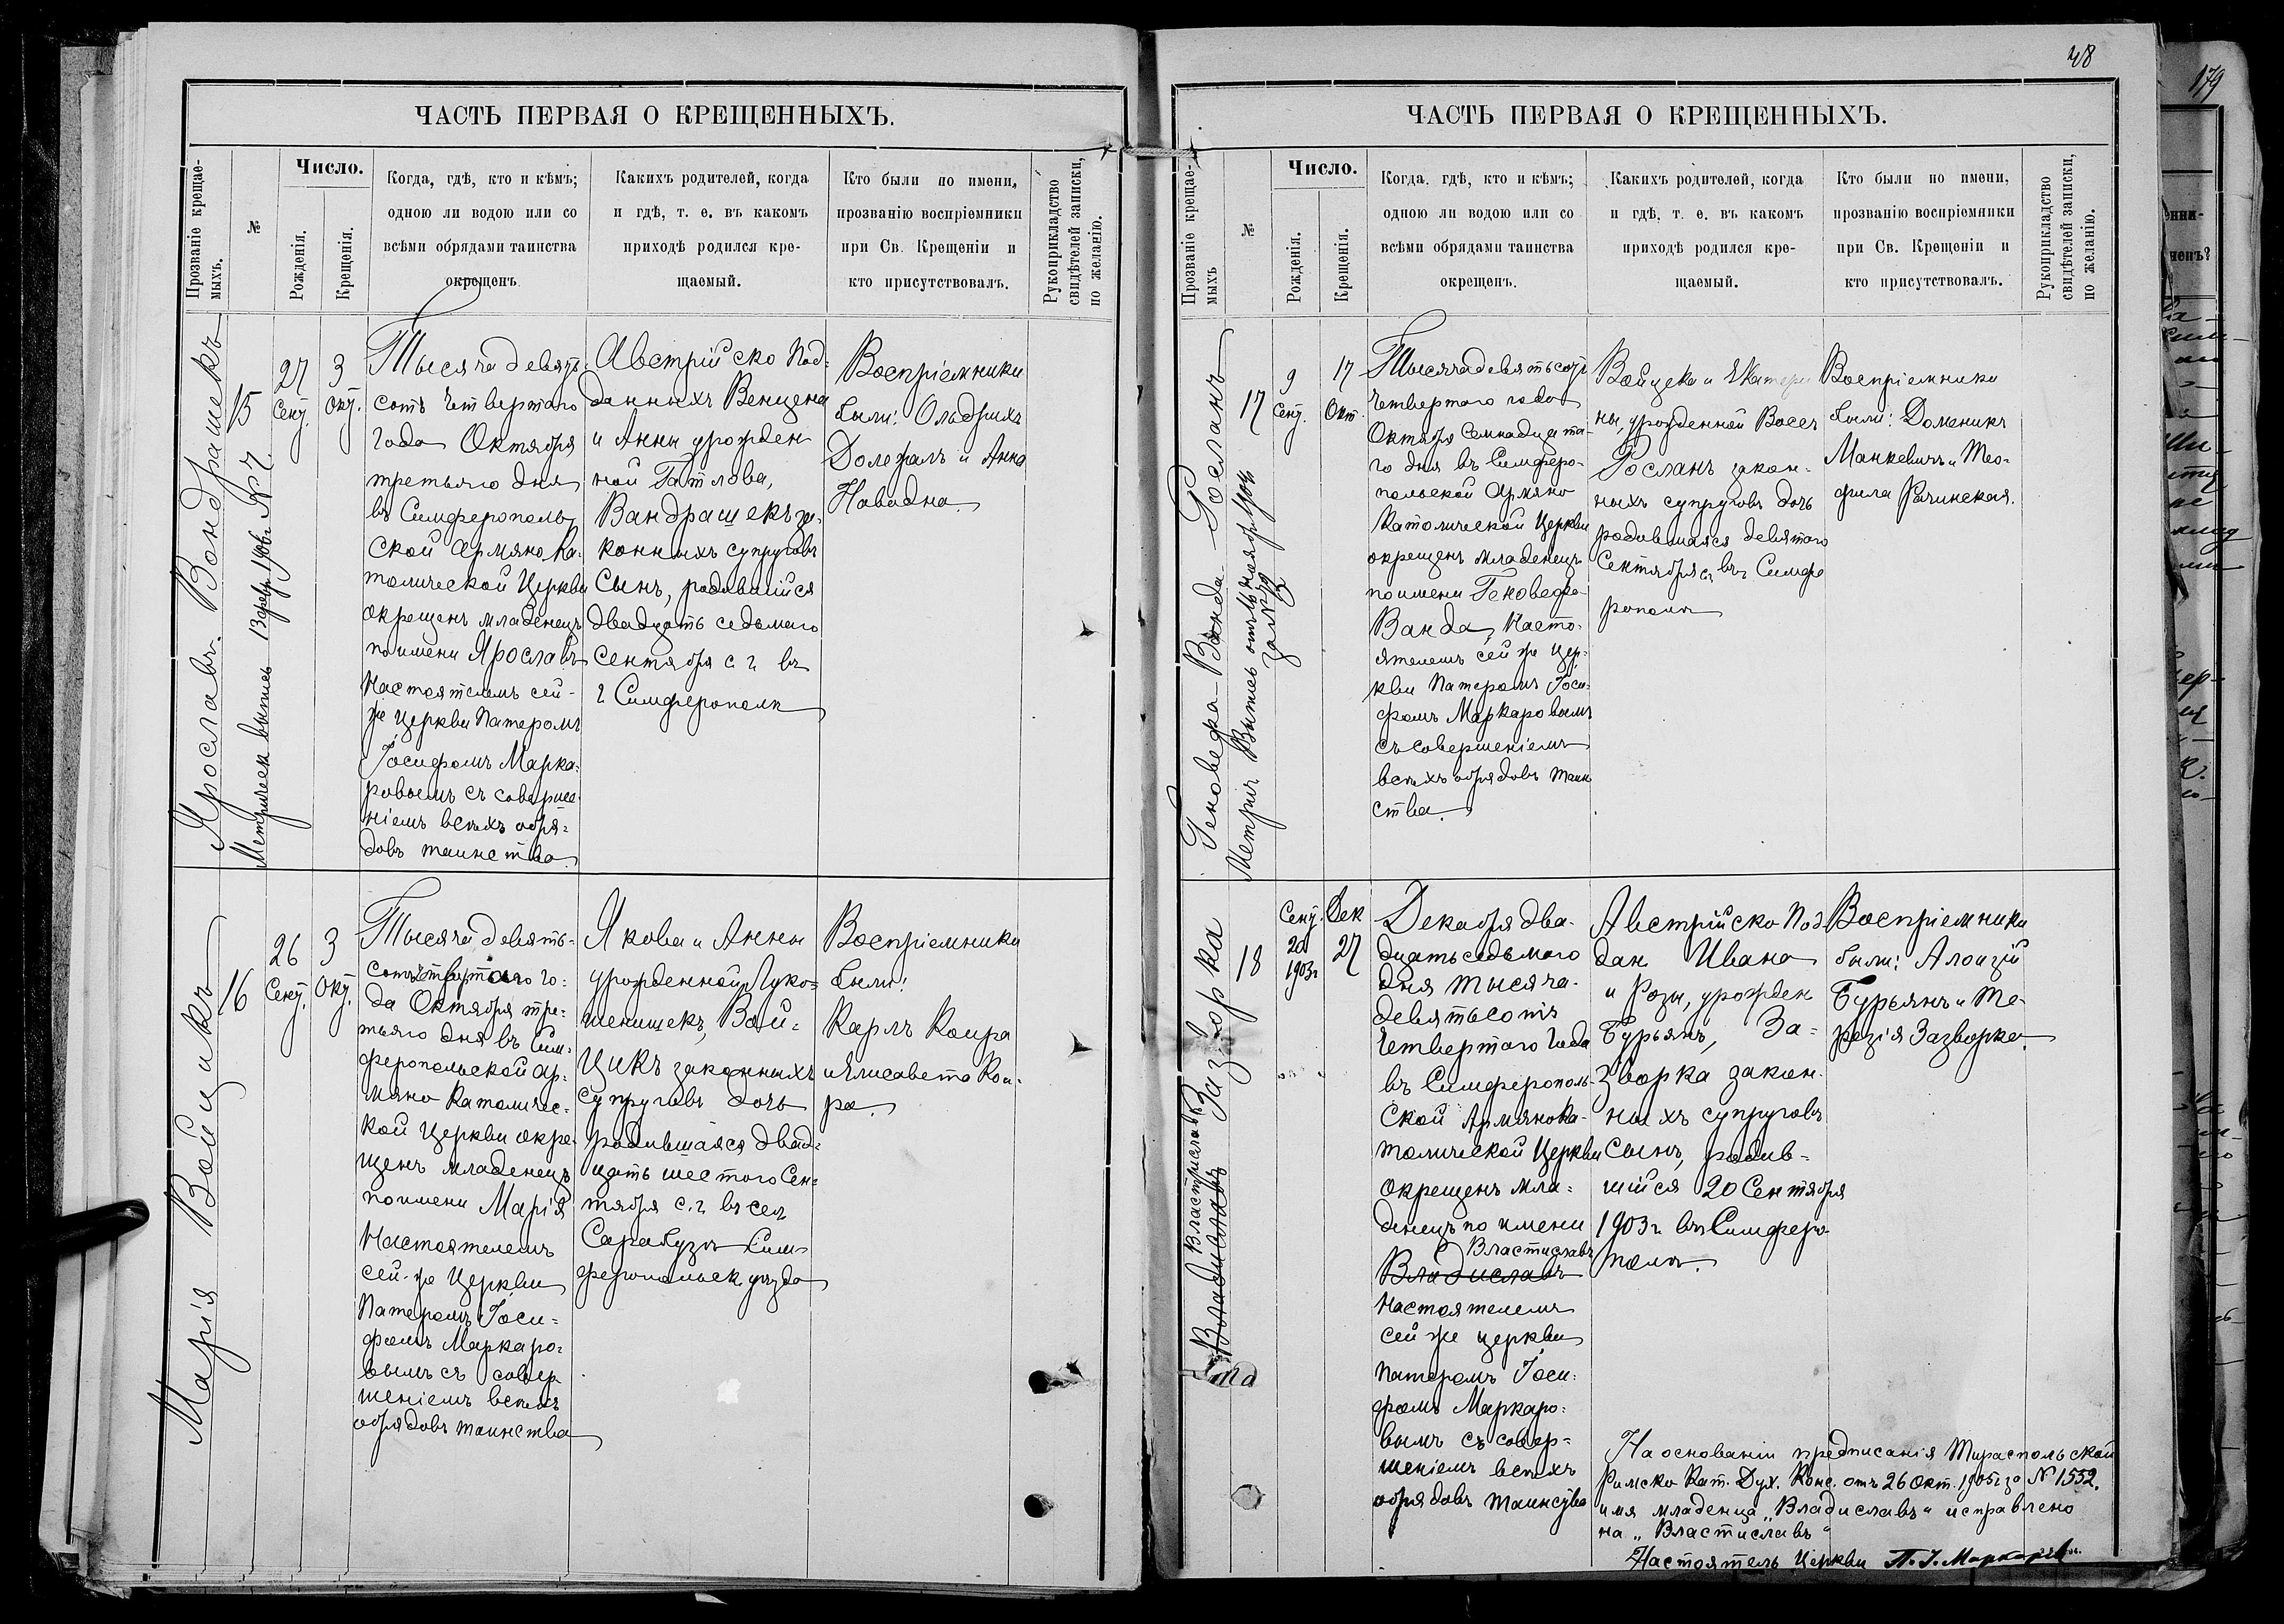 ЧАСТЬ ПЕРВАЯ О КРЕЩЕННЫХЪ.
Прозваніе крещае-
мыхъ.
№
Число.
Рожденія.
Крещенія.
Когда, гдѣ, кто и кѣмъ;
одною ли водою или со
всѣми обрядами таинства
окрещенъ.
Какихъ родителей, когда
и гдѣ, т. е. въ какомъ
приходѣ родился кре-
щаемый.
Кто были по имени,
прозванію воспріемники
при Св. Крещеніи и
кто присутствовалъ.
Рукоприкладство
свидѣтелей записки,
по желанію.
Ярославъ Вондрашекъ
15
27
Сент.
3
Окт.
Тысяча девять-
сотъ четвертаго
года Октября
третьяго дня
въ Симферополь-
ской Армяно Ка-
толической Церкви
окрещенъ младенецъ
по имени Ярославъ
Настоятелемъ сей-
же Церкви Патеромъ
Іосифомъ Марка-
ровымъ съ соверше-
ніемъ всѣхъ обря-
довъ таинства.
Австрійско Под-
данныхъ Венцена
и Анны урожден
ной Гатлова,
Вандрашекъ за-
конныхъ супруговъ
Сынъ, родившійся
двадцать седьмого
Сентября с. г. въ
г Симферополѣ
Воспріемники
были: Ольдрихъ
Долежалъ и Анна
Навадна.
Марія Войцикъ
16
26
Сент.
3
Окт.
Тысяча девять-
сотъ четвертаго го-
да Октября тре-
тьяго дня въ Сим-
феропольской Ар-
мяно Католичес-
кой Церкви окре-
щенъ младенецъ
по имени Марія
Настоятелемъ
сей-же Церкви
Патеромъ Іоси-
фомъ Маркаро-
вымъ съ совер
шеніемъ всѣхъ
обрядовъ таинства
Якова и Анны
урожденной Луко-
шенищекъ, Вой-
цикъ законныхъ
супруговъ дочь
родившаяся двад-
цать шестого Сен-
тября с. г. въ селѣ
Сарабузъ Сим-
феропольск. уѣзда
Воспріемники
были:
Карлъ Коира
и Елисавета Кои-
ра.
48
ЧАСТЬ ПЕРВАЯ О КРЕЩЕННЫХЪ.
Прозваніе крещае-
мыхъ
№
Число.
Рожденія.
Крещенія.
Когда, гдѣ, кто и кѣмъ;
одною ли водою или со
всѣми обрядами таинства
окрещенъ.
Какихъ родителей, когда
и гдѣ, т. е. въ какомъ
приходѣ родился кре-
щаемый.
Кто были по имени,
прозванію воспріемники
при Св. Крещеніи и
кто присутствовалъ.
Рукоприкладство
свидѣтелей записки,
по желанію.
Геновефа-Ванда Росланъ
17
9
Сент.
17
Окт.
Тысяча девятьсотъ
четвертаго года
Октября семнадцата-
го дня въ Симферо-
польской Армяно
Католической Церкви
окрещенъ младенецъ
по имени Геновефа-
Ванда, Насто-
ятелемъ сей же Цер-
кви Патеромъ Іоси-
фомъ Маркаровымъ
съ совершеніемъ
всѣхъ обрядовъ таин
ства.
Войцеха и Екатери
ны, урожденной Восеч
Росланъ закон-
ныхъ супруговъ дочь
родившаяся девятаго
Сентября с. г. въ г Симфе
рополѣ
Воспріемники
были: Доменикъ
Манкевичъ и Тео-
фила Рачинская.
Властиславъ
Владиславъ Зазворка
18
Сент.
20
1903 г
Дек
27
Декабря два-
дцать седьмого
дня тысяча-
девятьсотъ
четвертаго года
въ Симферополь-
ской Армяно Ка-
толической Церкви
окрещенъ мла-
денецъ по имени
Властиславъ
Владиславъ
Настоятелемъ
сей же церкви
Патеромъ Іоси-
фомъ Маркаро-
вымъ съ совер-
шеніемъ всѣхъ
обрядовъ таинства
Австрійско Под
дан Ивана
и Розы, урожден
Бурьянъ, За-
зворка закон-
ныхъ супруговъ
сынъ, родив-
шійся 20 Сентября
1903 г. въ Симферо-
полѣ.
Воспріемники
были: Алоизій
Бурьянъ и Те-
резія Зазворка.
На основаніи предписанія Тираспольской
Римско Кат. Дух. Конс. отъ 26 Окт. 1905 г за № 1552.
имя младенца „Владиславъ" исправлено
на „Властиславъ"
Настоятель Церкви П. І. Маркаровъ
179